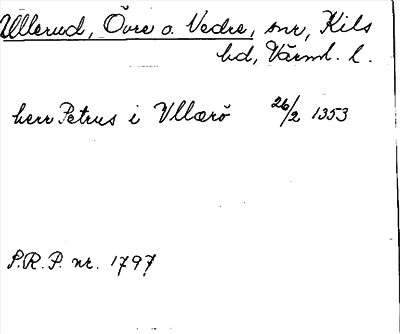 Ullerud, Övre o. Nedre, snr, Kils
hd, Värml. l.
herr Petrus i Vllærö 26/2 1353
S.R.P. nr. 1797